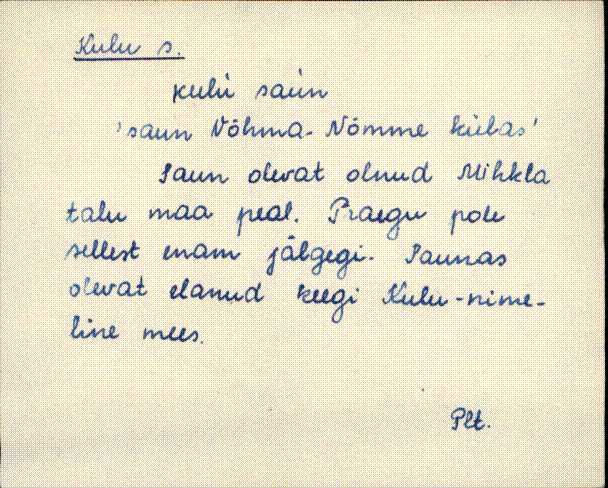 Kulu s.
kulù saùn
'saun Võhma-Nõmme külas'
Saun olevat olnud Mihkla
talu maa peal. Praegu pole
sellest enam jälgegi. Saunas
olevat elanud keegi Kulu-nime-
line mees.
Plt.